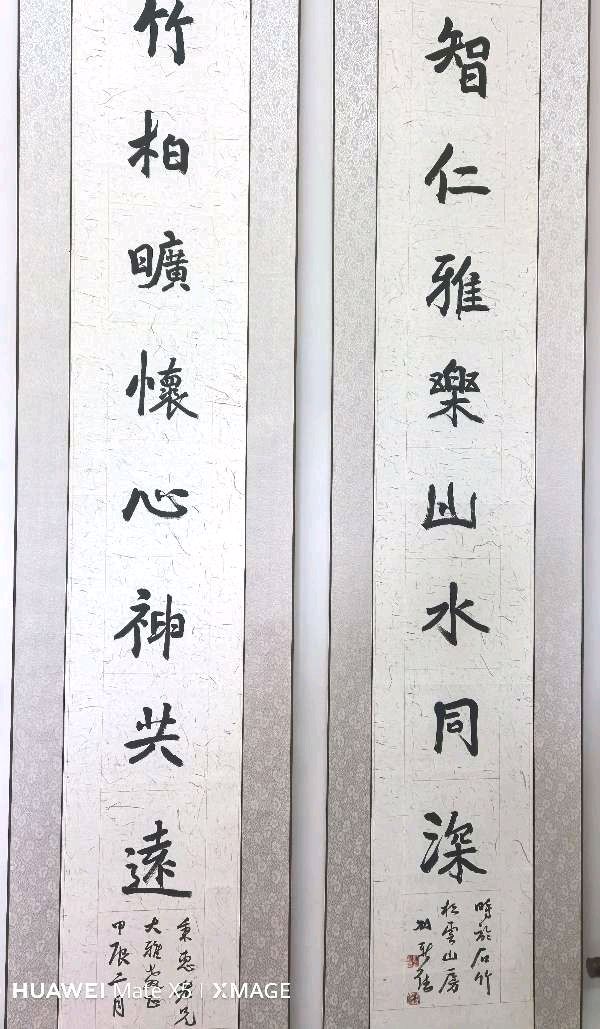 智仁雅樂山水同深
時於石竹
松雲山房
竹柏曠懷心神共遠
秉惠兄
大雅正
甲辰二月
HUAWEI Mate X3 | XMAGE